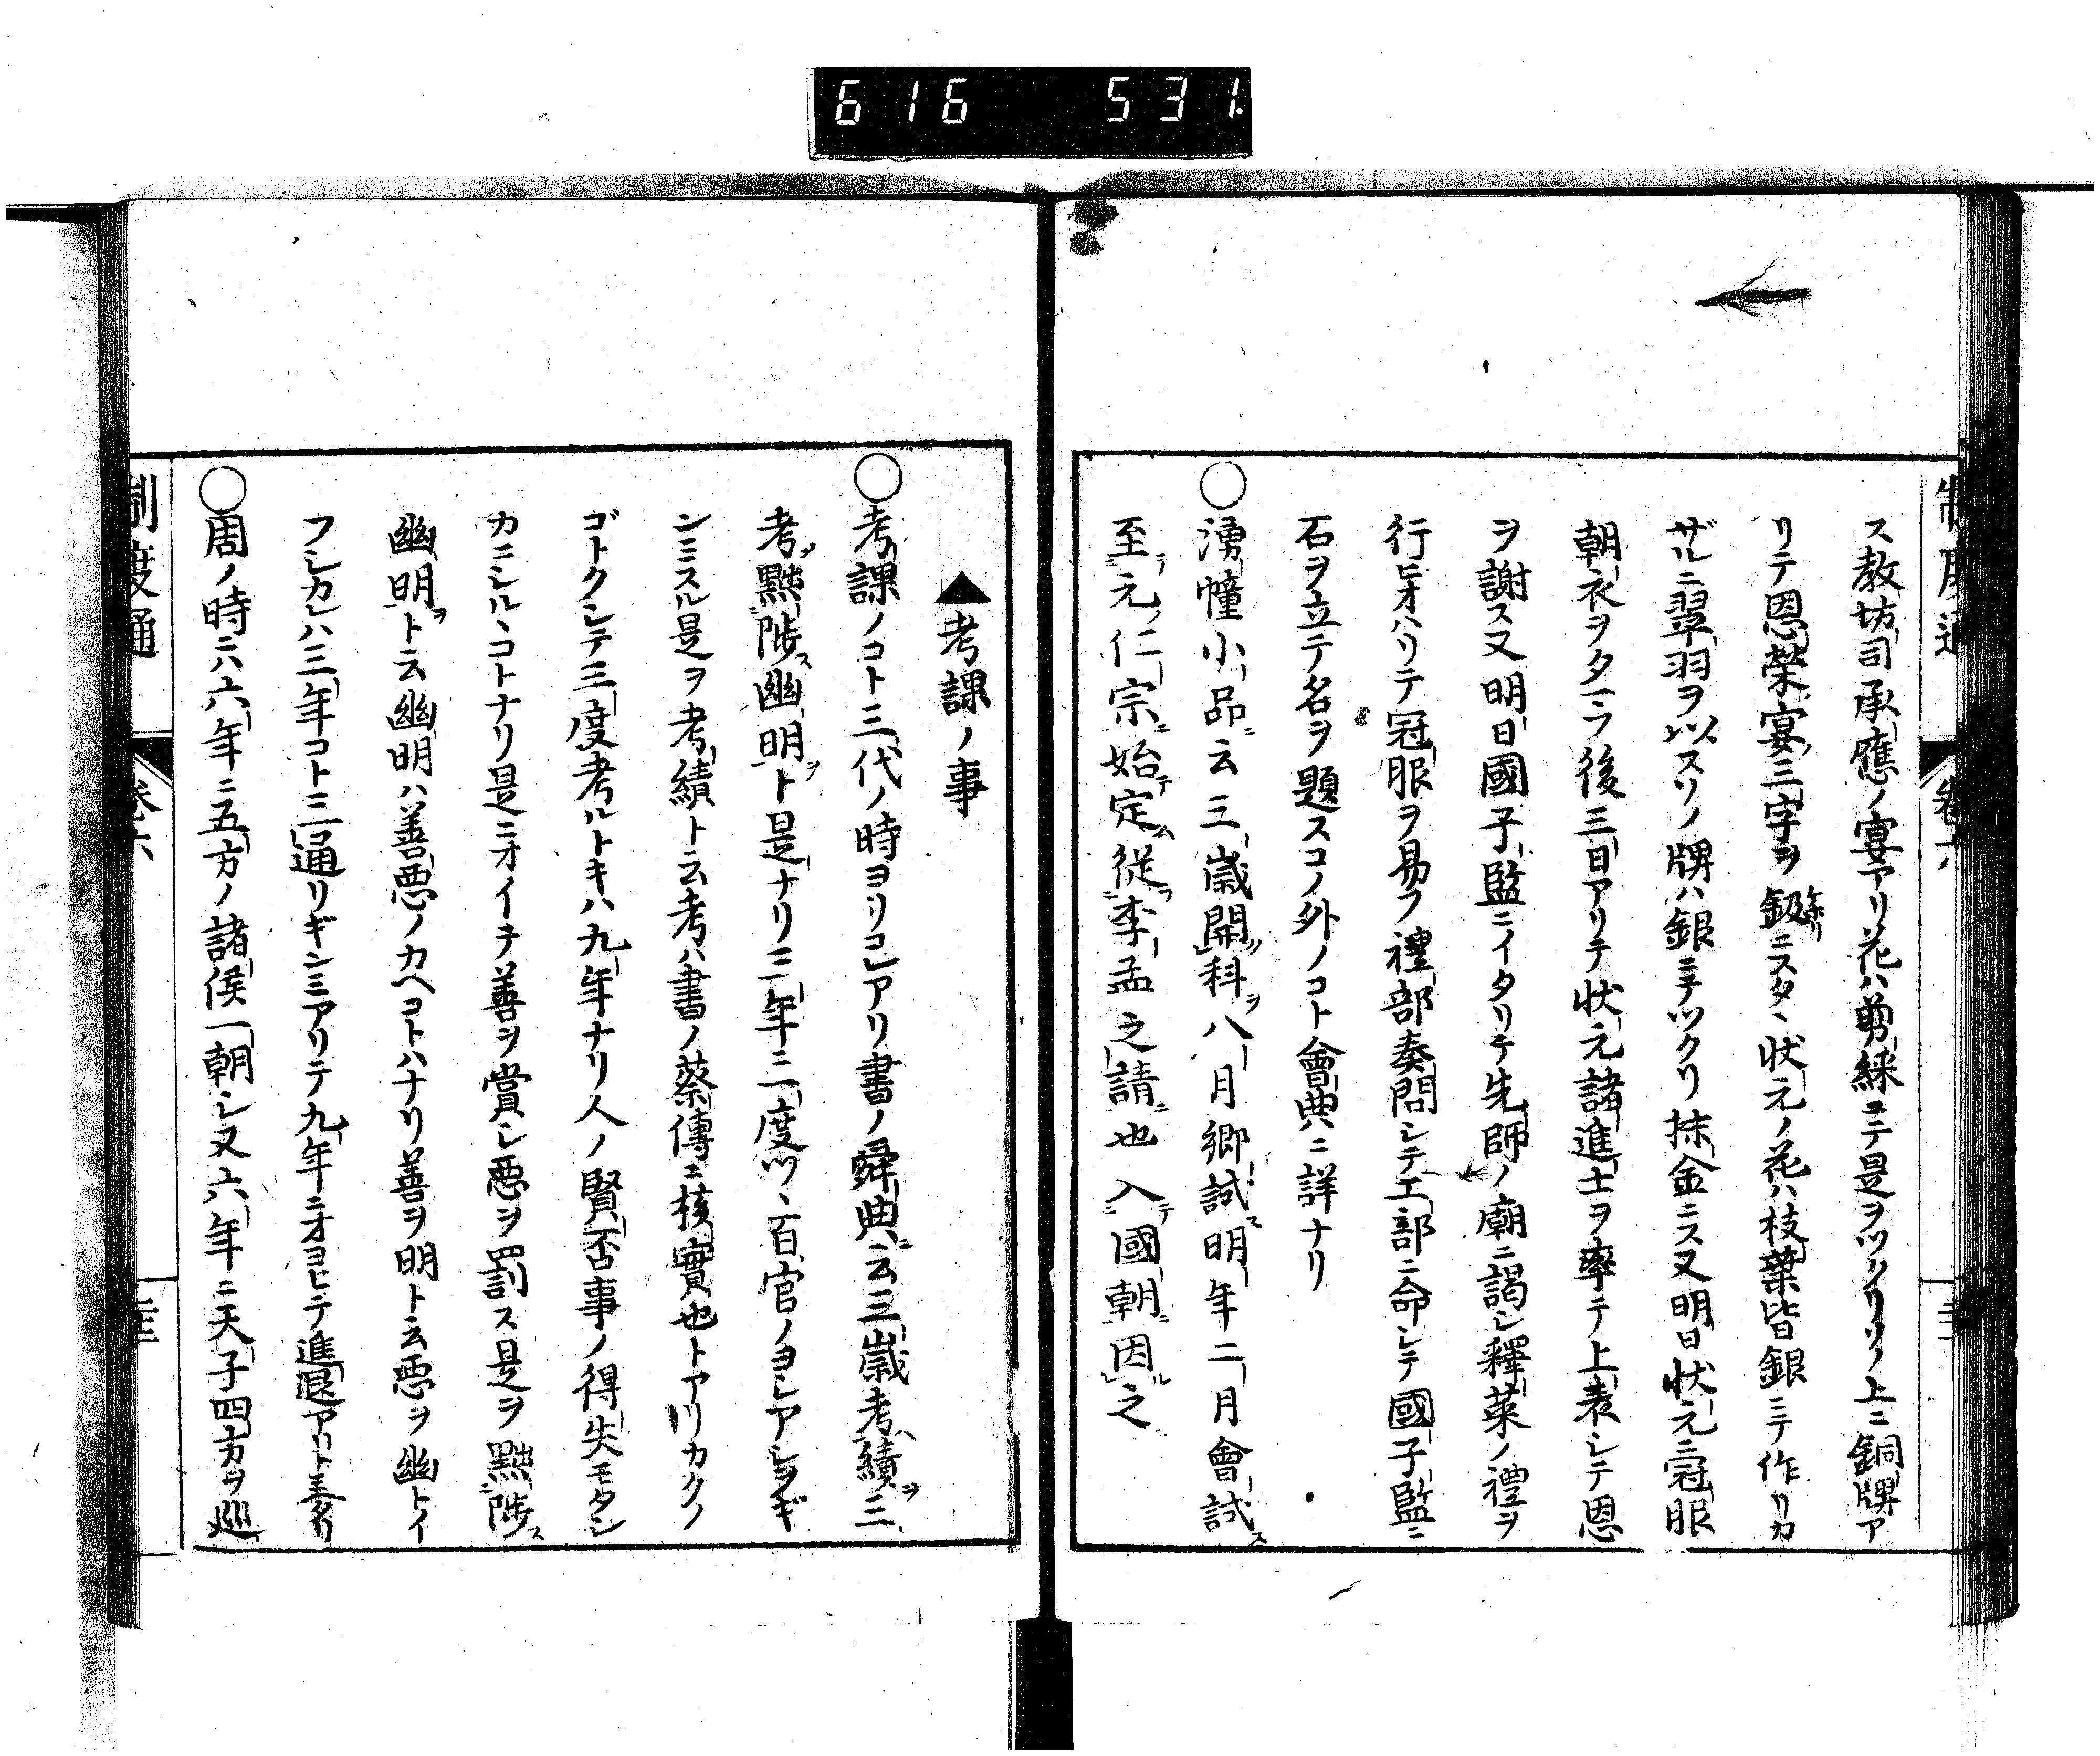 616 531.
制度通 卷六
ス教坊司承應ノ宴アリ花ハ剪綵ニテ是ヲツクリソノ上ニ銅牌ア
リテ恩榮宴三字ヲ鈒ニスタヽ状元ノ花ハ枝葉皆銀ニテ作リカ
ザルニ翠羽ヲ以スソノ牌ハ銀ニテツクリ抹金ニス又明日状元ニ冠服
朝衣ヲタマフ後三日アリテ状元諸進士ヲ率テ上表シテ恩
ヲ謝ス又明日國子監ニイタリテ先師ノ廟ニ謁シ釋菜ノ禮ヲ
行ヒオハリテ冠服ヲ易フ禮部奏問シテ工部ニ命シテ國子監ニ
石ヲ立テ名ヲ題スコノ外ノコト會典ニ詳ナリ
○湧幢小品ニ云三歳開科ヲ八月鄉試ス明年二月會試ス
至元仁宗ニ始テ定ム從李孟之請ニ也入テ國朝ニ因ル之ニ
▲考課ノ事
○考課ノコト三代ノ時ヨリコレアリ書ノ舜典ニ云三歳考績ヲ三
考黜陟ス幽明ヲト是ナリ三年ニ一度ツヽ百官ノヨシアシヲギ
ンミスル是ヲ考績ト云考ハ書ノ蔡傳ニ核實也トアリカクノ
ゴトクシテ三度考ルトキハ九年ナリ人ノ賢否事ノ得失モタシ
カニシルヽコトナリ是ニオイテ善ヲ賞シ悪ヲ罰ス是ヲ黜陟ス
幽明ヲト云幽明ハ善悪ノカヘコトハナリ善ヲ明ト云悪ヲ幽トイ
フシカレハ三年コト三通リギンミアリテ九年ニオヨヒテ進退アリト云タリ
○周ノ時ニハ六年ニ五方ノ諸侯一朝シ又六年ニ天子四方ヲ巡
制度通 卷六